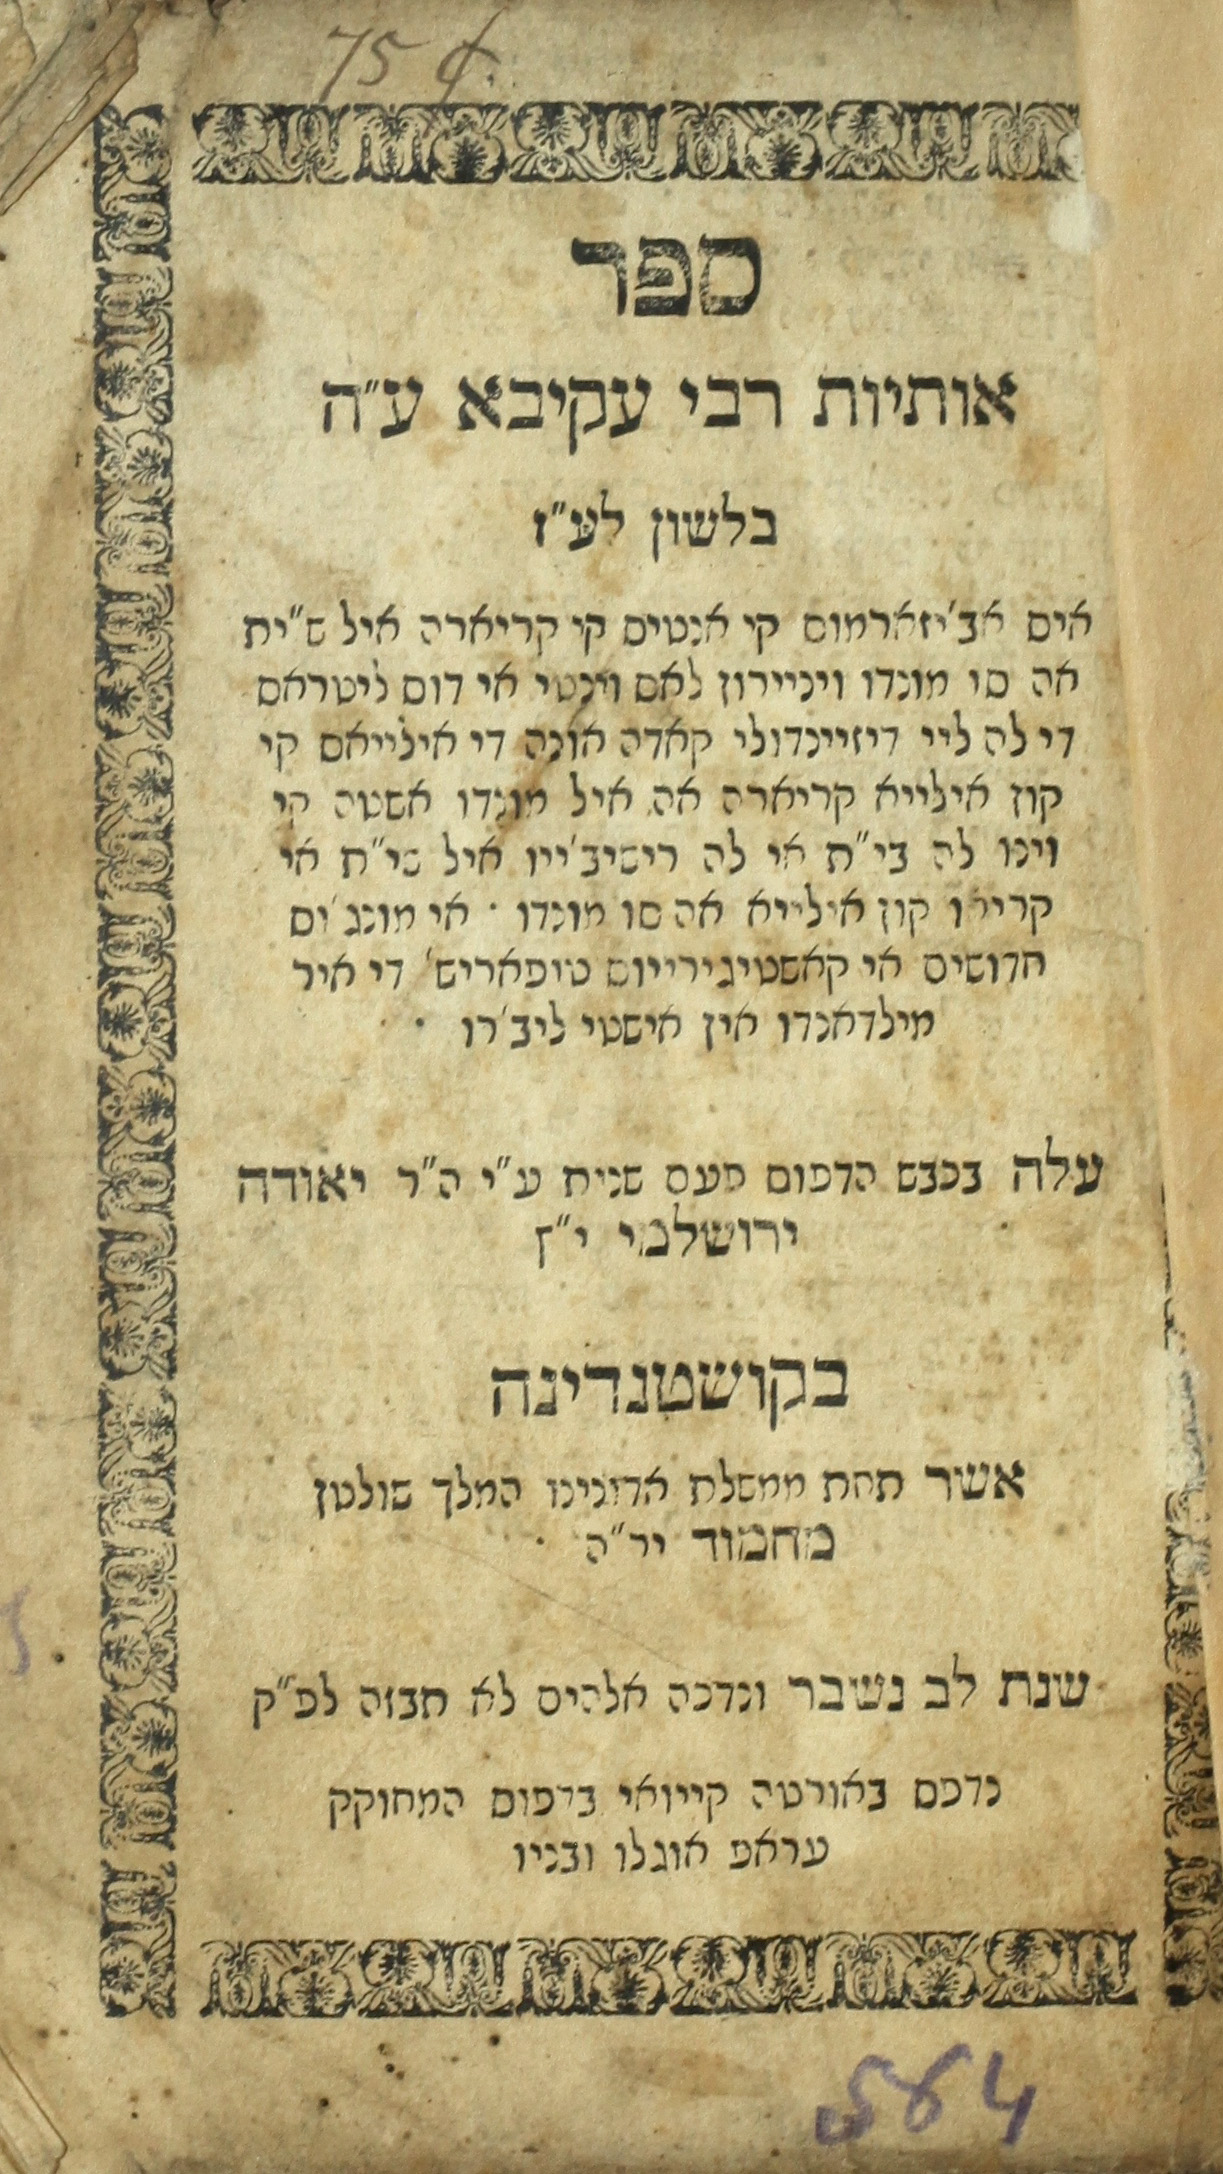 75 ¢.
ספר
אותיות רבי עקיבא ע״ה
בלשון לע״ז
אים אב׳יזארמוס קי אנטיס קי קריארה איל ש״ית
אה סו מונדו ויניירון לאס וינטי אי דוס ליטראס
די לה ליי דיזיינדולי קאדה אונה די אילייאס קי
קון אילייא קריארה אה איל מונדו אסטה קי
וינו לה בי״ת אי לה ריסיב׳ייו איל שי״ת אי
קרייו קון אילייא אה סו מונדו · אי מונג׳וס
חדושים אי קאשטיגירייוס טופאריש׳ די איר
מילדאנדו אין אישטי ליב׳רו ·
עלה בכבש הדפוס פעם שנית ע״י ה״ר יאודה
ירושלמי י״ץ
בקושטנדינה
אשר תחת ממשלת אדונינו המלך שולטן
מחמוד יר״ה ·
שנת לב נשבר ונדכה אלהים לא תבזה לפ״ק
נדפס באורטה קייואי בדפוס המחוקק
עראפ אוגלו ובניו
564